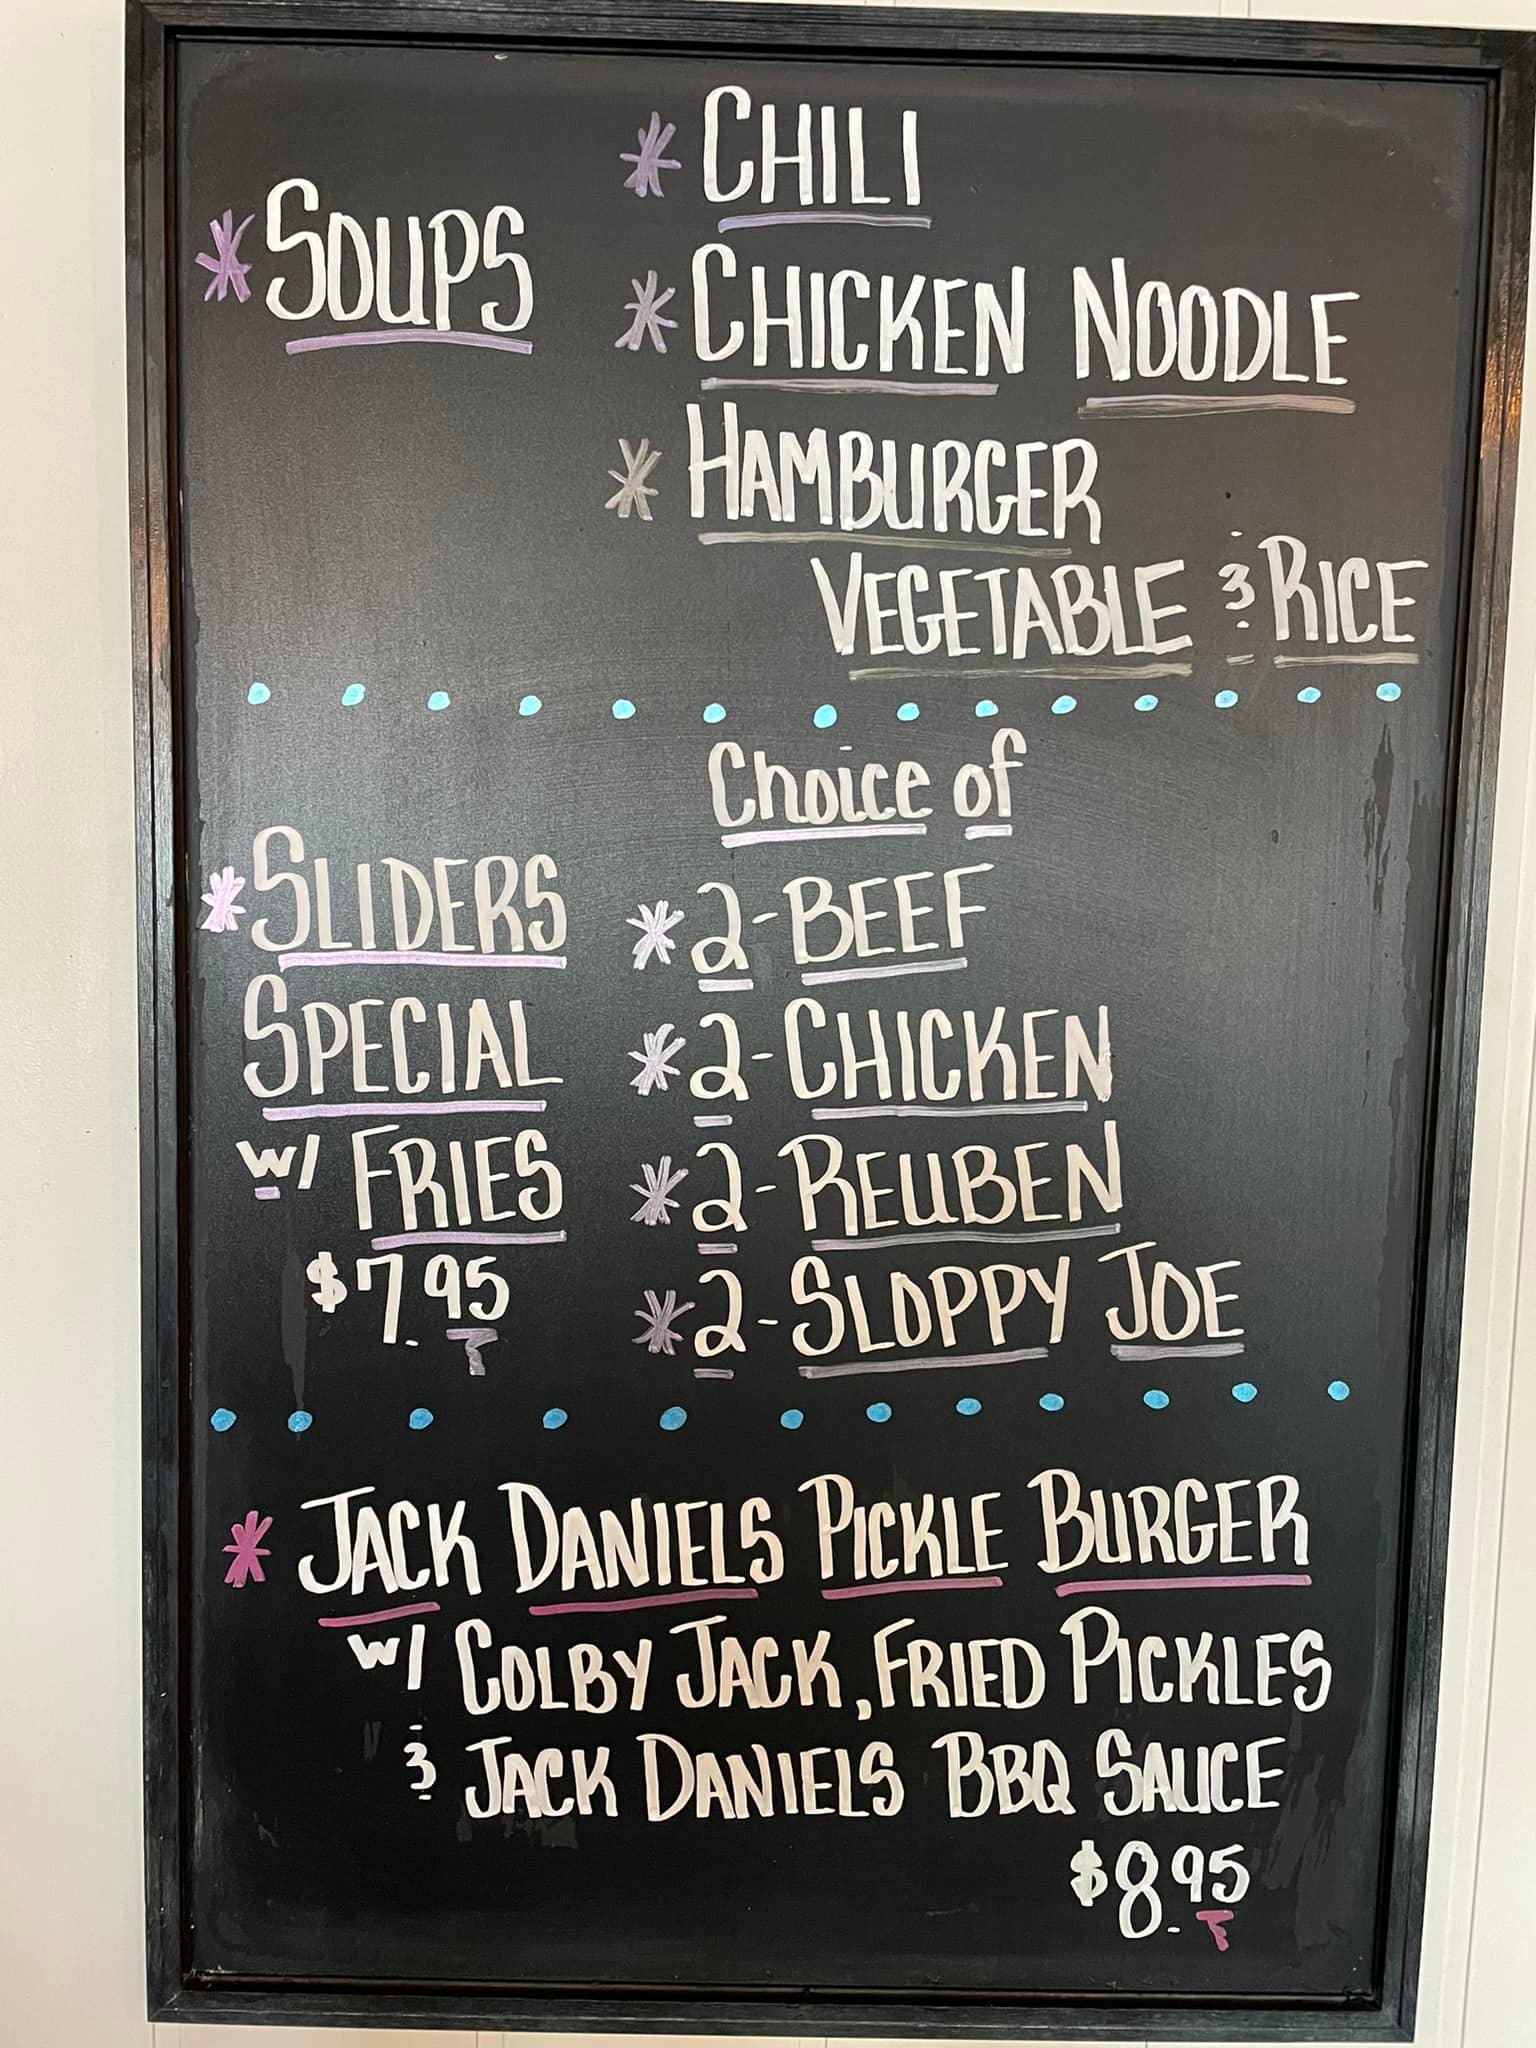 * SOUPS
* CHILI
* CHICKEN NOODLE
* HAMBURGER
VEGETABLE & RICE
* SLIDERS
SPECIAL
w/ FRIES
$7.95
Choice of
* 2 - BEEF
* 2 - CHICKEN
* 2 - REUBEN
* 2 - SLOPPY JOE
* JACK DANIELS PICKLE BURGER
w/ COLBY JACK, FRIED PICKLES
& JACK DANIELS BBQ SAUCE
$8.95